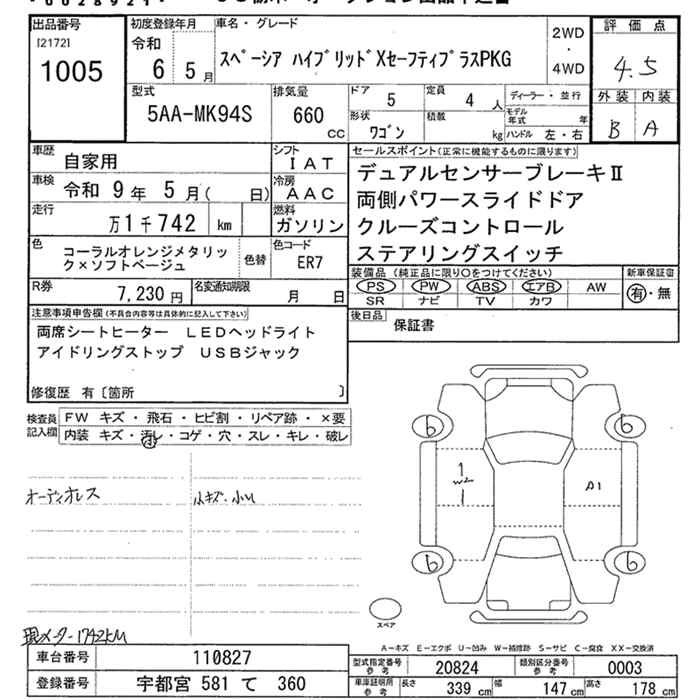 出品番号
[2172]
1005
初度登録年月
令和
6 5月
車名・グレード
スペーシア ハイブリッドXセーフティプラスPKG
2WD
・
4WD
評価点
4.5
外装 内装
B A
型式
5AA-MK94S
排気量
660
CC
ドア
5
定員
4人
形状
ワゴン
積載
kg
ディーラー・並行
モデル年式 年
ハンドル 左・右
車歴
自家用
シフト
IAT
車検
令和 9年 5月( 日)
冷房
AAC
走行
万1千742 km
燃料
ガソリン
色
コーラルオレンジメタリック×ソフトベージュ
色替
色コード
ER7
R券
7,230円
名変通知期限
月 日
セールスポイント(正常に機能するものに限ります)
デュアルセンサーブレーキⅡ
両側パワースライドドア
クルーズコントロール
ステアリングスイッチ
装備品(純正品に限り○をつけてください)
PS PW ABS エアB AW
SR ナビ TV カワ
新車保証書
有・無
後日品
保証書
注意事項申告欄(不具合内容等は具体的に記入して下さい)
両席シートヒーター LEDヘッドライト
アイドリングストップ USBジャック
修復歴 有〔箇所 〕
検査員記入欄
FW キズ・飛石・ヒビ割・リペア跡・×要
内装 キズ・汚レ・コゲ・穴・スレ・キレ・破レ
小
オーディオレス
小キズ・小U
現メーター1742KM
6
6
1
W2
1
A1
6
6
スペア
A-キズ E-エクボ U-凹み W-補修跡 S-サビ C-腐食 XX-交換済
車台番号
110827
登録番号
宇都宮 581 て 360
型式指定番号
参考
20824
類別区分番号
参考
0003
車庫証明所
参考
長さ 339cm
幅 147cm
高さ 178cm